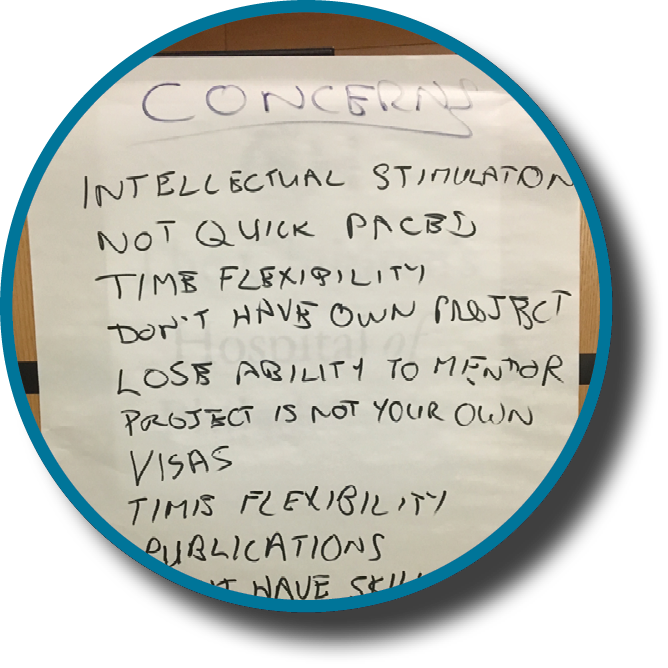 CONCERNS
INTELLECTUAL STIMULATION
NOT QUICK PACED
TIME FLEXIBILITY
DON'T HAVE OWN PROJECT
Hospital of
LOSE ABILITY TO MENTOR
PROJECT IS NOT YOUR OWN
VISAS
TIME FLEXIBILITY
PUBLICATIONS
HAVE